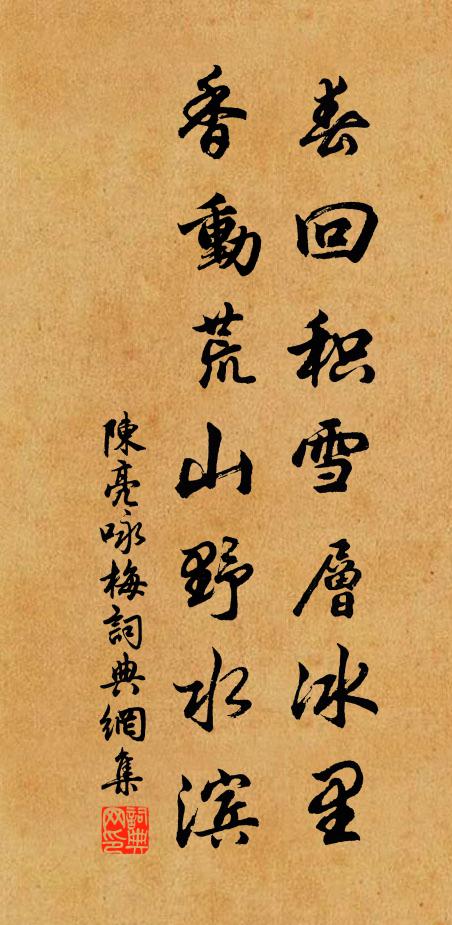 春回积雪層冰里
香動荒山野水滨
陳亮咏梅詞典網集
詞典网印